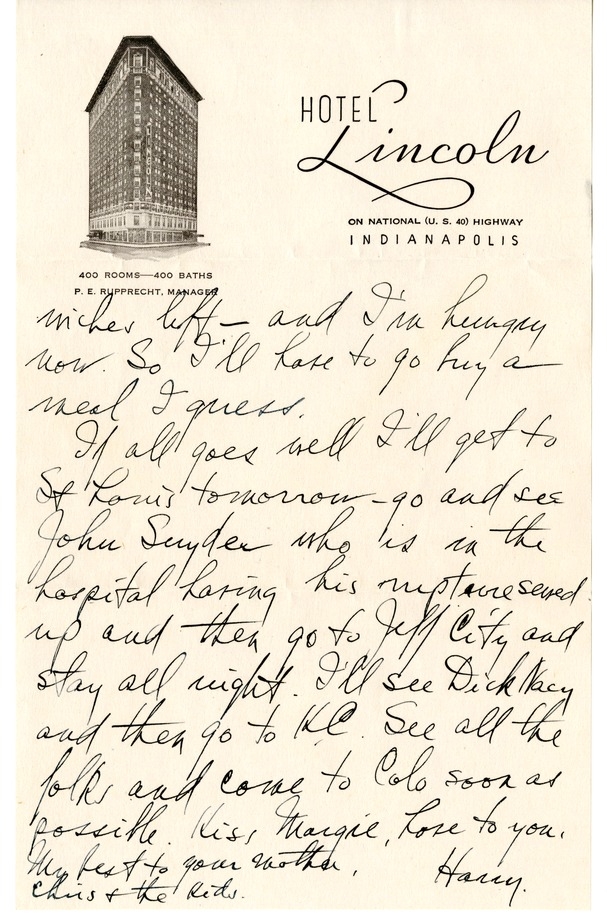 HOTEL
Lincoln
ON NATIONAL (U. S. 40) HIGHWAY
INDIANAPOLIS
400 ROOMS—400 BATHS
P. E. RUPPRECHT, MANAGER
wiches left — and I'm hungry
now. So I'll have to go buy a
meal I guess.
If all goes well I'll get to
St Louis tomorrow - go and see
John Snyder who is in the
hospital having his rupture sewed
up and then go to Jeff City and
stay all night. I'll see Dick Nacy
and then go to KC. See all the
folks and come to Colo soon as
possible. Kiss Margie, love to you.
My best to your mother,
Chris & the kids.
Harry.